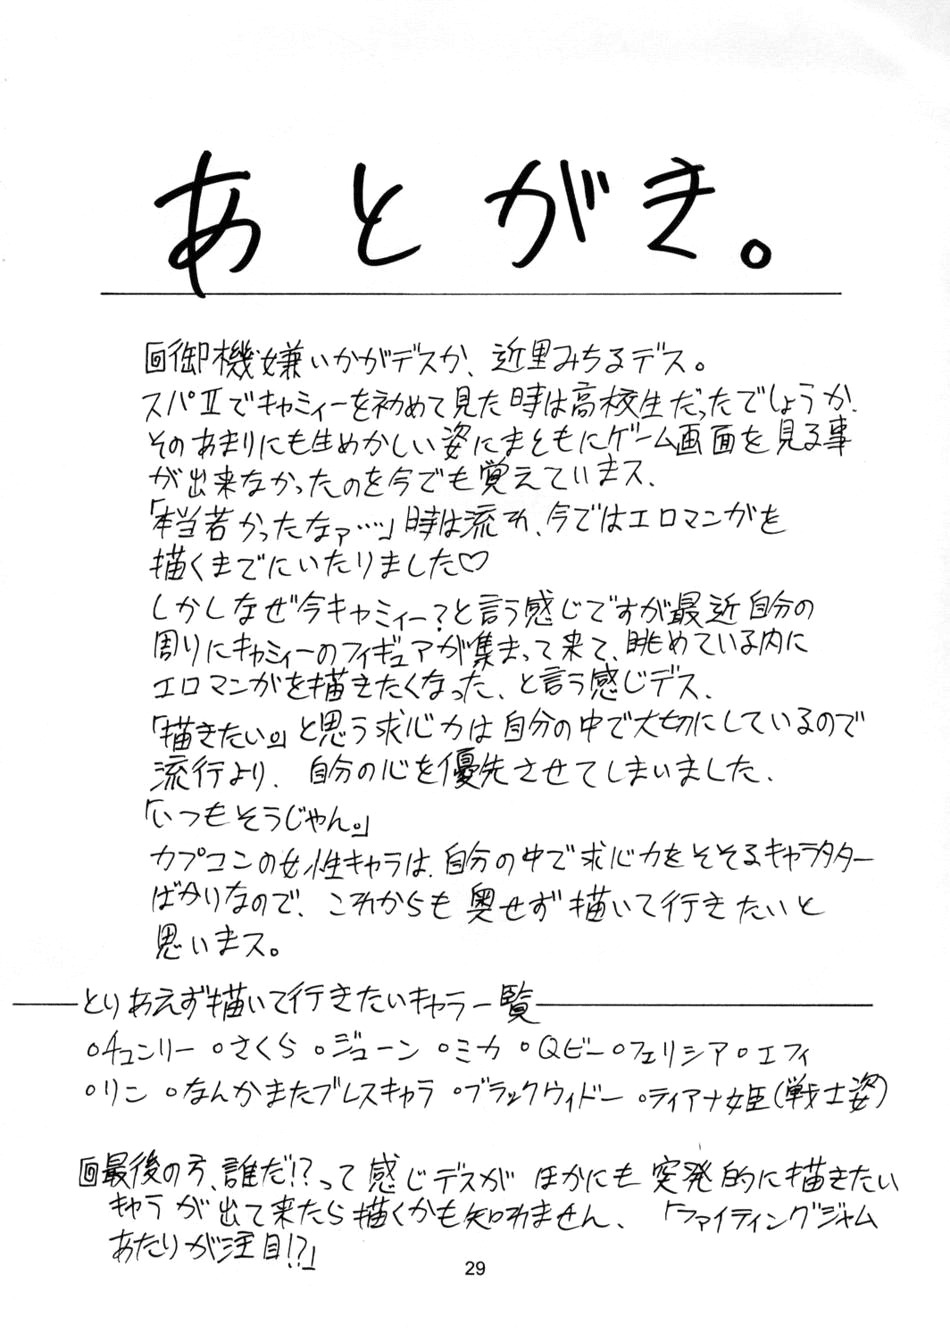 あとがき。
回御機嫌いかがデスか、近里みちるデス。
スパⅡでキャミィーを初めて見た時は高校生だったでしょうか、
そのあまりにも生めかしい姿にまともにゲーム画面を見る事
が出来なかったのを今でも覚えていまス、
「本当若かったなァ……」時は流れ、今ではエロマンガを
描くまでにいたりました♡
しかしなぜ今キャミィー？と言う感じですが最近自分の
周りにキャミィーのフィギュアが集まって来て、眺めている内に
エロマンガを描きたくなった、と言う感じデス、
「描きたい。」と思う求心力は自分の中で大切にしているので
流行より、自分の心を優先させてしまいました、
「いつもそうじゃん。」
カプコンの女性キャラは、自分の中で求心力をそそるキャラクター
ばかりなので、これからも臭せず描いて行きたいと
思いまス。
とりあえず描いて行きたいキャラ一覧
○チュンリー ○さくら ○ジューン ○ミカ ○Qビー ○フェリシア ○エフィ
○リン ○なんかまたブレスキャラ ○ブラックウィドー ○ティアナ姫(戦士姿)
回最後の方、誰だ!?って感じデスがほかにも突発的に描きたい
キャラが出て来たら描くかも知れません、「ファイティングジャム
あたりが注目!?」
29